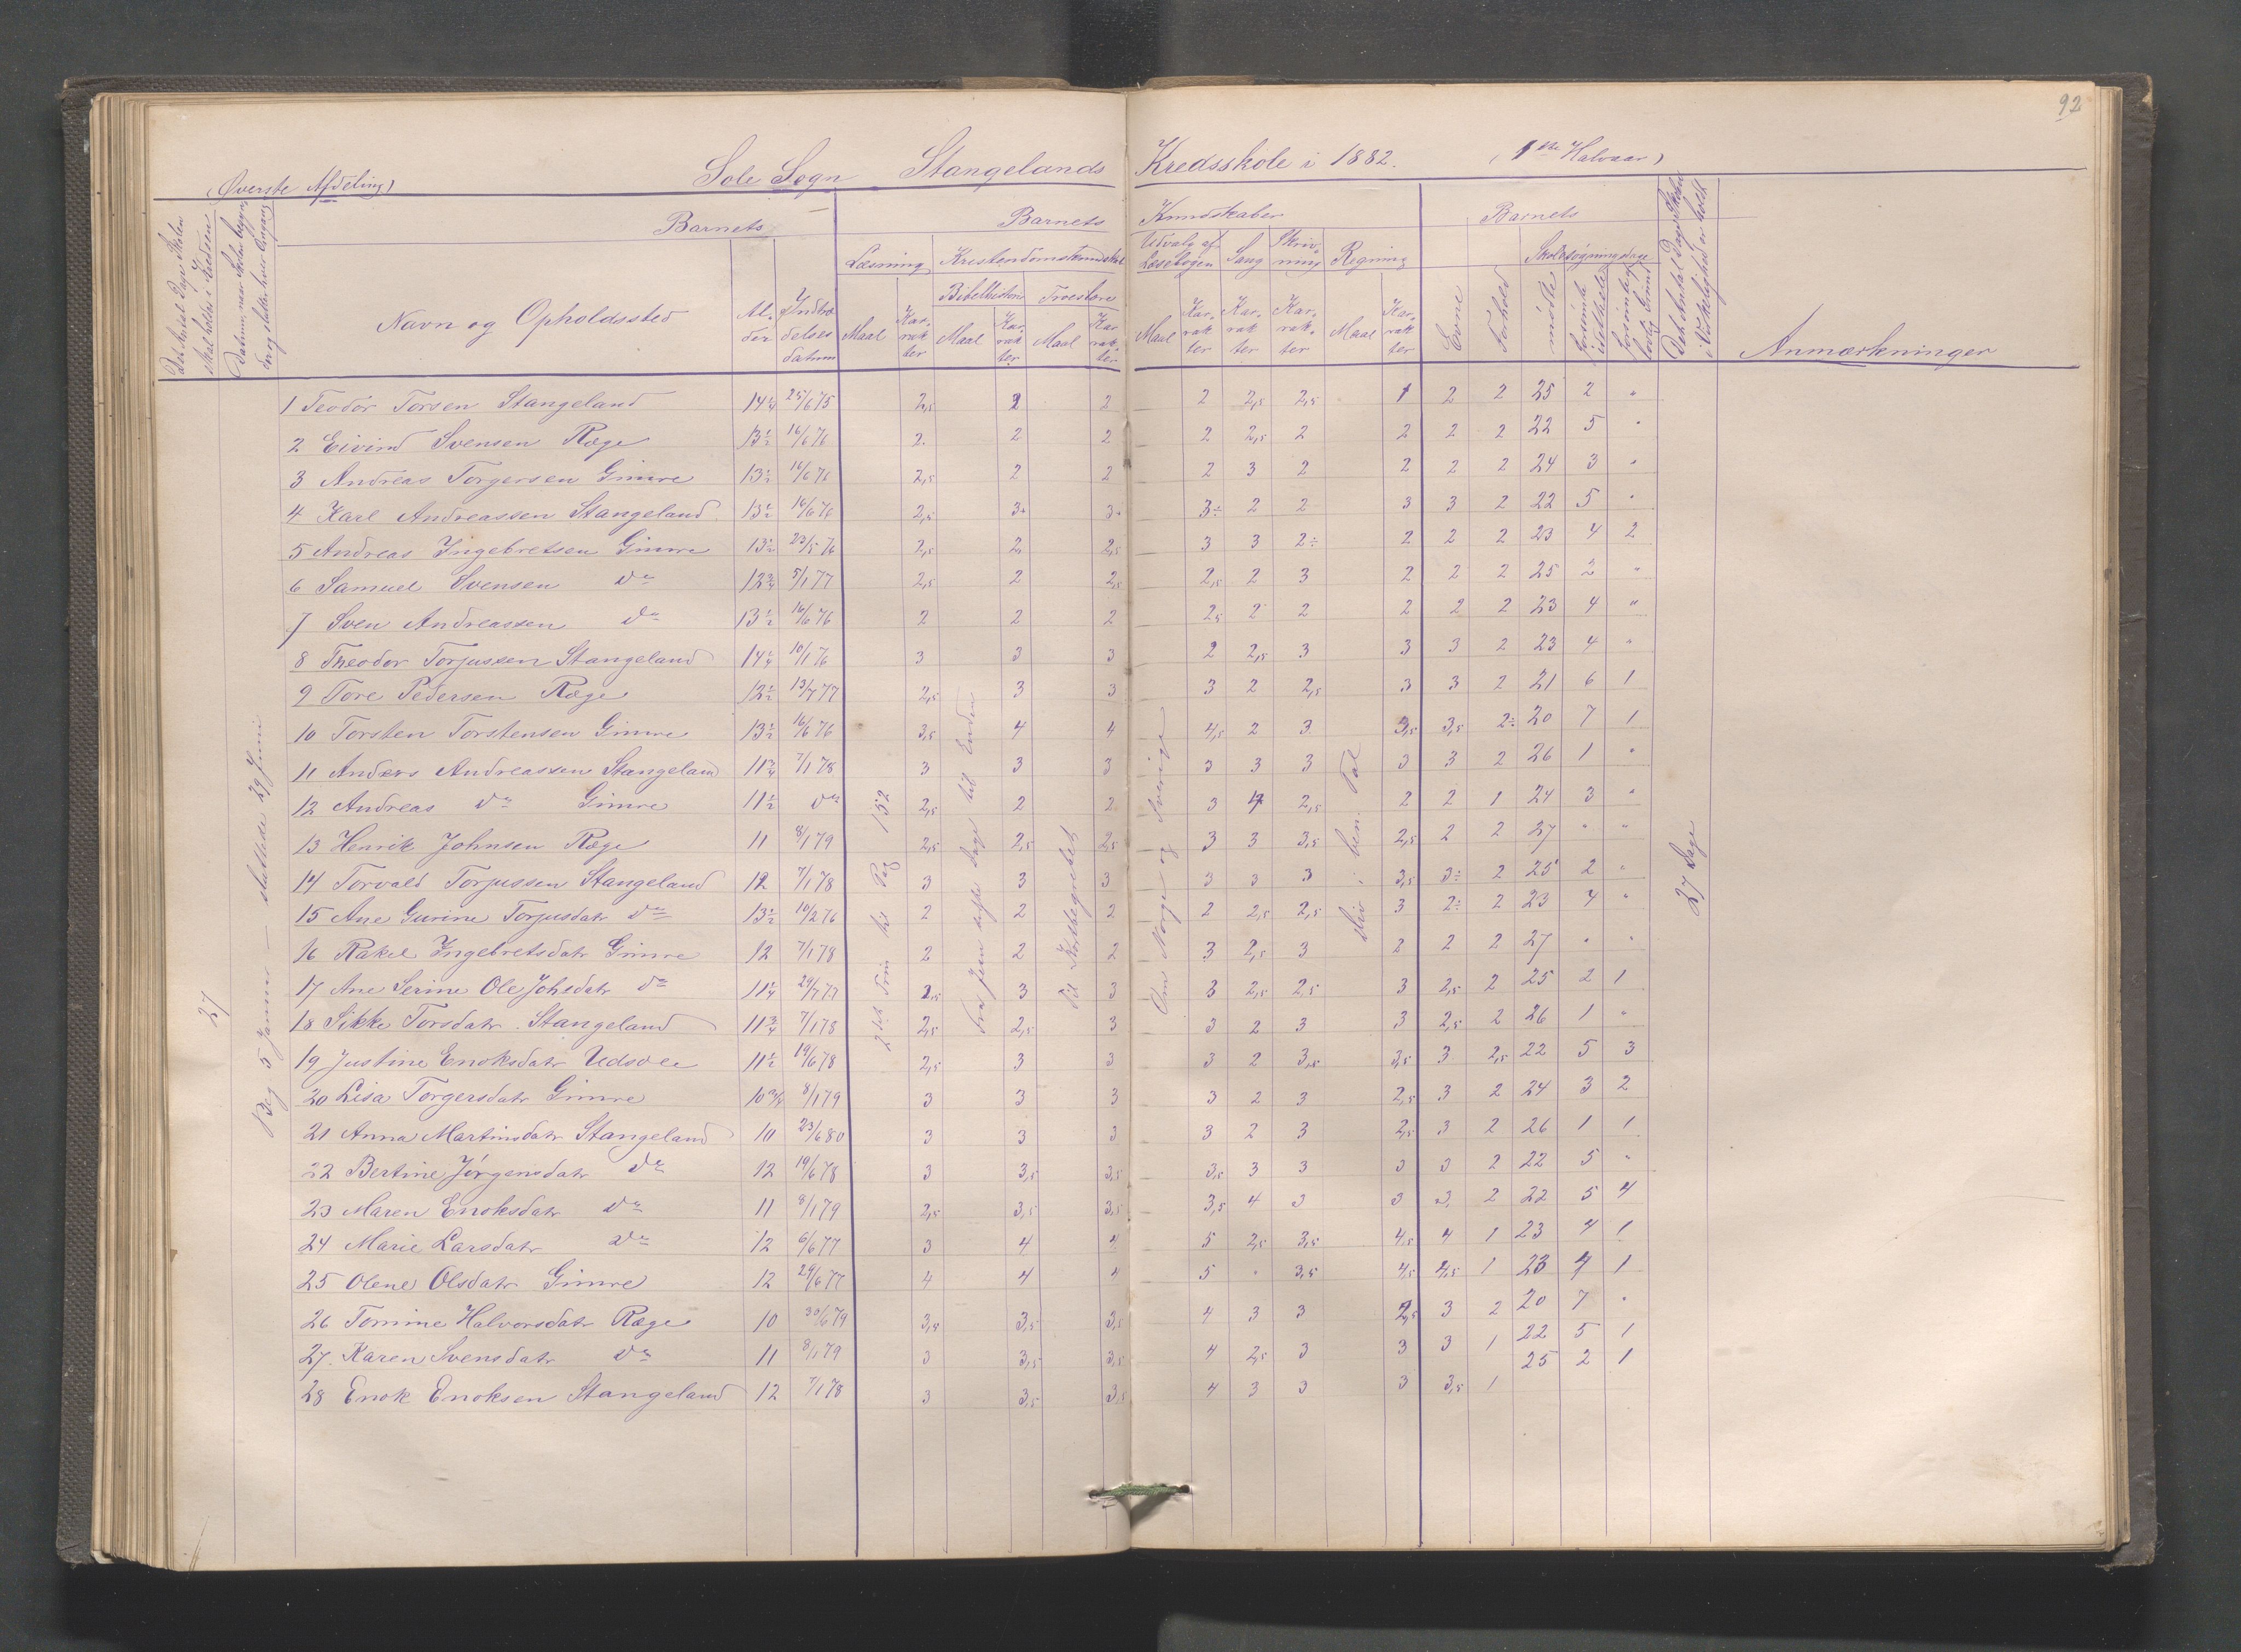 92
(Øverste Afdeling) Sole Sogn Stangelands Kredsskole i 1882. (1ste Halvaar)
Det Antal Dage Skolen skal holdes i Kredsen
Datum, naar Skolen begynder og slutter hver Omgang
Barnets
Navn og Opholdssted
Alder
Indtrædelsesdatum
Barnets Kundskaber
Læsning Kristendomskundskab Udvalg af Læsebogen Sang Skrivning Regning
Bibelhistorie Troeslære
Maal Karakter Maal Karakter Maal Karakter Maal Karakter Karakter Karakter Maal Karakter
Barnets
Evne Forhold
Skolesøgningsdage
mødte forsømte i det hele forsømte af lovlig Grund
Det Antal Dage Skolen i Virkelighed er holdt
Anmærkninger
27
Beg. 5 Januar – sluttede 29 Juni
2det Trin til Pag 152
Fra Jesu sidste Dage til Enden
Til Kirkebegrebet
Om Norge og Sverige
div. i ben. Tal
27 Dage
1 Teodor Torsen Stangeland 14 1/4 25/6 75 2,5 2 2 2 2,5 2,5 1 2 2 25 2 "
2 Eivind Svensen Ræge 13 1/2 16/6 76 2. 2 2 2 2,5 2 2 2 2 22 5 "
3 Andreas Torgersen Gimre 13 1/2 16/6 76 2,5 2 2 2 3 2 2 2 2 24 3 "
4 Karl Andreassen Stangeland 13 1/2 16/6 76 2,5 3+ 3+ 3÷ 2 2 3 3 2 22 5 "
5 Andreas Ingebretsen Gimre 13 1/2 23/5 76 2,5 2 2,5 3 3 2÷ 2 2 2 23 4 2
6 Samuel Svensen do 12 3/4 5/1 77 2,5 2 2,5 2,5 2 3 2 2 2 25 2 "
7 Sven Andreassen do 13 1/2 16/6 76 2 2 2 2,5 2 2 2 2 2 23 4 "
8 Theodor Torjussen Stangeland 14 1/4 10/1 76 3 3 3 2 2,5 3 3 3 2 23 4 "
9 Tore Pedersen Ræge 12 1/2 13/7 77 2,5 3 3 3 2 2,5 3 3 2 21 6 1
10 Torsten Torstensen Gimre 13 1/2 16/6 76 3,5 4 4 4,5 2 3 3,5 3,5 2÷ 20 7 1
11 Anders Andreassen Stangeland 11 3/4 7/1 78 3 3 3 3 3 3 3 3 2 26 1 "
12 Andreas do Gimre 11 1/2 do 2,5 2 2 3 4 2,5 2 2 1 24 3 "
13 Henrik Johnsen Ræge 11 8/1 79 2,5 2,5 2,5 3 3 3,5 2,5 2 2 27 " "
14 Torvald Torjussen Stangeland 12 7/1 78 3 3 3 3 3 3 3,5 3÷ 2 25 2 "
15 Ane Gurine Torjusdatr do 13 1/2 10/2 76 2 2 2 2 2,5 2,5 3 2÷ 2 23 4 "
16 Rakel Ingebretsdatr Gimre 12 7/1 78 2 2 2 3 2,5 3 2 2 2 27 " "
17 Ane Serine Ole Johsdatr do 11 1/4 29/7 77 2,5 3 3 3 2,5 2,5 3 2,5 2 25 2 1
18 Sikke Torsdatr Stangeland 11 3/4 7/1 78 2,5 2,5 3 3 2 3 3 2,5 2 26 1 "
19 Justine Enoksdatr Udsole 11 1/2 19/6 78 2,5 3 3 3 2 3,5 3,5 3 2,5 22 5 3
20 Lisa Torgersdatr Gimre 10 3/4 8/1 79 3 3 3 3 2 3 2,5 3 2 24 3 2
21 Anna Martinsdatr Stangeland 10 23/6 80 3 3 3 3 2 3 2,5 3 2 26 1 1
22 Bertine Jørgensdatr do 12 19/6 78 3 3,5 3,5 3,5 3 3 3 3 2 22 5 "
23 Maren Enoksdatr do 11 8/1 79 2,5 3,5 3,5 3,5 4 3 3 3 2 22 5 4
24 Marie Larsdatr do 12 6/6 77 3 4 4 5 2,5 3,5 4,5 4 1 23 4 1
25 Olene Olsdatr Gimre 12 29/6 77 4 4 4 5 " 3,5 4,5 4,5 1 23 4 1
26 Tomine Halvorsdatr Ræge 10 30/6 79 3,5 3,5 3,5 4 3 3 2,5 3 2 20 7 "
27 Karen Svensdatr do 11 8/1 79 3 3,5 3,5 4 2,5 3 3 3 1 22 5 1
28 Enok Enoksen Stangeland 12 7/1 78 3 3,5 3,5 4 3 3 3 3,5 1 25 2 1